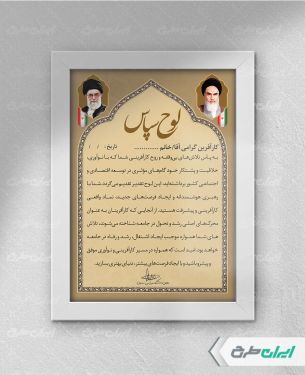 لوح سپاس
کارآفرین گرامی آقا/خانم ............ تاریخ: / /
به پاس تلاش‌های بی‌وقفه و روح کارآفرینی شما که با نوآوری،
خلاقیت و پشتکار خود گام‌های مؤثری در توسعه اقتصادی و
اجتماعی کشور برداشته‌اید، این لوح تقدیر تقدیم می‌گردد. شما با
رهبری هوشمندانه و ایجاد فرصت‌های جدید، نماد واقعی
کارآفرینی و پیشرفت هستید. از آنجایی که کارآفرینان به عنوان
محرک‌های اصلی رشد و تحول در جامعه شناخته می‌شوند، تلاش
های شما همواره موجب ایجاد اشتغال، رشد و رفاه در جامعه
خواهد بود امید است که همواره در مسیر کارآفرینی و نوآوری موفق
و پیشرو باشید و با ایجاد فرصت‌های بیشتر، دنیای بهتری بسازید.
ایران طرح